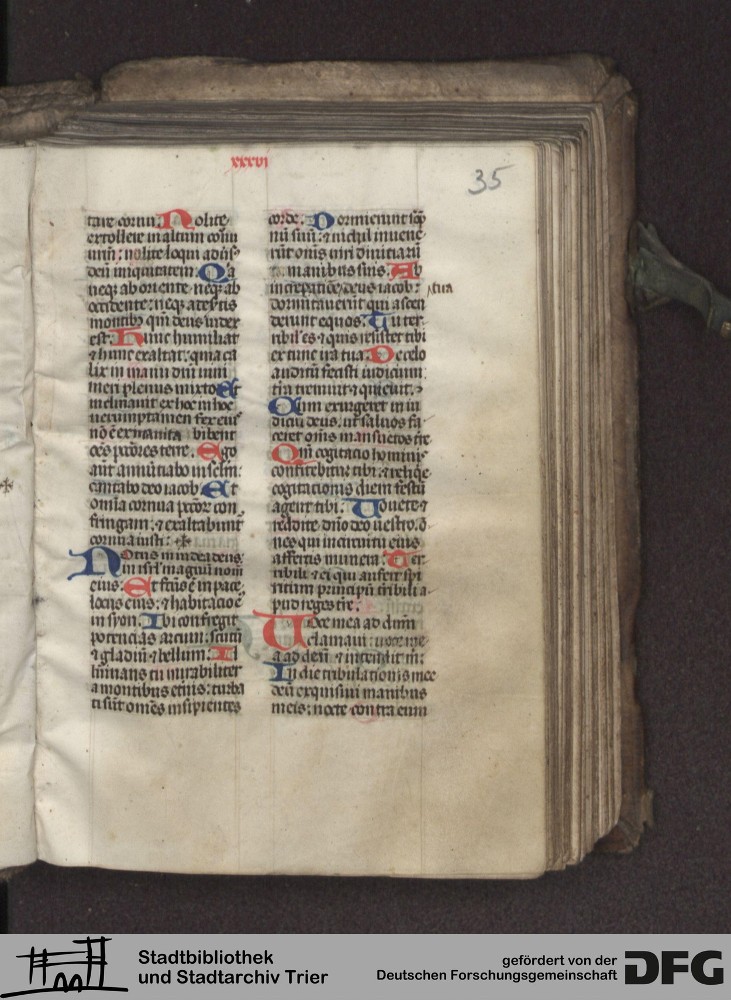 xxxvi
35
tare cornu. Nolite
extollere in altum cornu
urm̄: nolite loqui adūs
deū iniquitatem. Qa
neqꝫ ab oriente neqꝫ ab
occidente: neqꝫ a deꝭtis
montibꝫ qm̄ deus iudex
est. Hunc humiliat
⁊ hunc exaltat: quia ca
lix in manu dm̄ uini
meri plenus mixto. Et
inclinauit ex hoc in hoc
uerumptamen fex eiꝰ
nō ē exinanita bibent
oēs pctōres terre. Ego
aūt annūtiabo in sclm̄:
cantabo deo iacob. Et
omīa cornua pctōꝝ con
fringam: ⁊ exaltabunt̄
cornua iusti:
Notus in iudea deus:
in isrl̄ magnū nom̄
eius. Et fcūs ē in pace
locus eius: ⁊ habitacio ē
in syon. Ibi confregit
potencias arcuum: scutū
⁊ gladiū ⁊ bellum. Il
luminans tu mirabiliter
a montibus et̄nis: turba
ti sūt omēs insipientes
corde. Dormierunt sōp
nū suū: ⁊ nichil inuene
rūt om̄s uiri diuitiaꝝ
in manibus suis. Ab
increpatiōe deus iacob: tua
dormitauerūt qui ascen
derunt equos. Tu ter
ribil'es ⁊ quis resistet tibi
ex tunc ira tua. De celo
auditū fecisti iudicium:
tr̄a tremuit ⁊ quieuit.
Qum exurgeret in iu
diciū deus: ut saluos fa
ceret om̄s mansuetos tr̄e
Qm̄ cogitacio hominis
confitebitur tibi: ⁊ reliqe
cogitacionis diem festū
agent tibi. Uouete ⁊
reddite dn̄o deo uestro: ō
nes qui in circuitu eius
affertis munera. Ter
ribili ⁊ ei qui aufert spi
ritum principū tribili a
pud reges tr̄e.
Uoce mea ad dūm
clamaui: uoce me
a ad deū ⁊ intendit m̄:
In die tribulationis mee
deū exquisiui manibus
meis: nocte contra eum
Stadtbibliothek
und Stadtarchiv Trier
gefördert von der
Deutschen Forschungsgemeinschaft
DFG